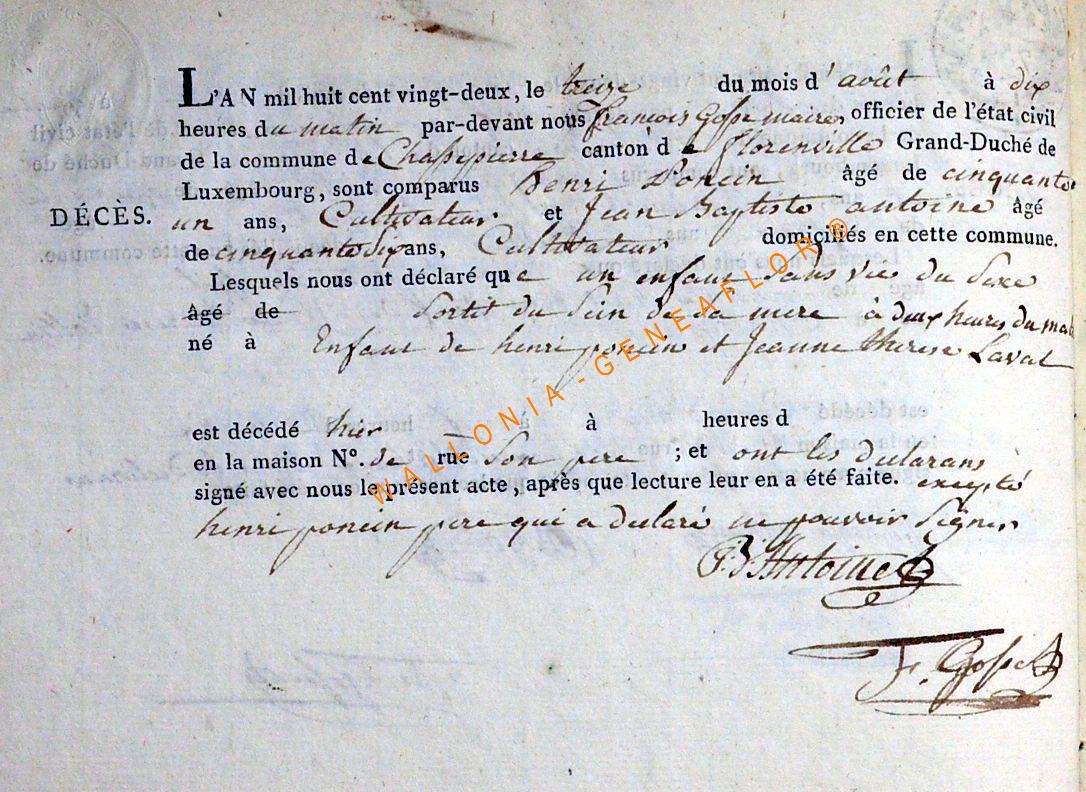 L'AN mil huit cent vingt-deux, le treize du mois d'août à dix
heures du matin par-devant nous françois Gosse maire, officier de l'état civil
de la commune de Chassepierre canton d e florenville Grand-Duché de
Luxembourg, sont comparus henri Poncin âgé de cinquante
DÉCÈS. un ans, Cultivateur et Jean Baptiste antoine âgé
de cinquante six ans, Cultivateur domiciliés en cette commune.
Lesquels nous ont déclaré que un enfant sans vie du Sexe
âgé de Sortit du Sein de Sa mere à deux heures du mat
né à Enfant de henri poncin et Jeanne therese Laval
est décédé hier à à heures d
en la maison N°. de rue Son pere ; et ont les déclarans
signé avec nous le présent acte, après que lecture leur en a été faite. excepté
henri poncin pere qui a déclaré ne pouvoir Signer
J. B. Antoine
F. Gosse
WALLONIA - GENEAFLOR ®